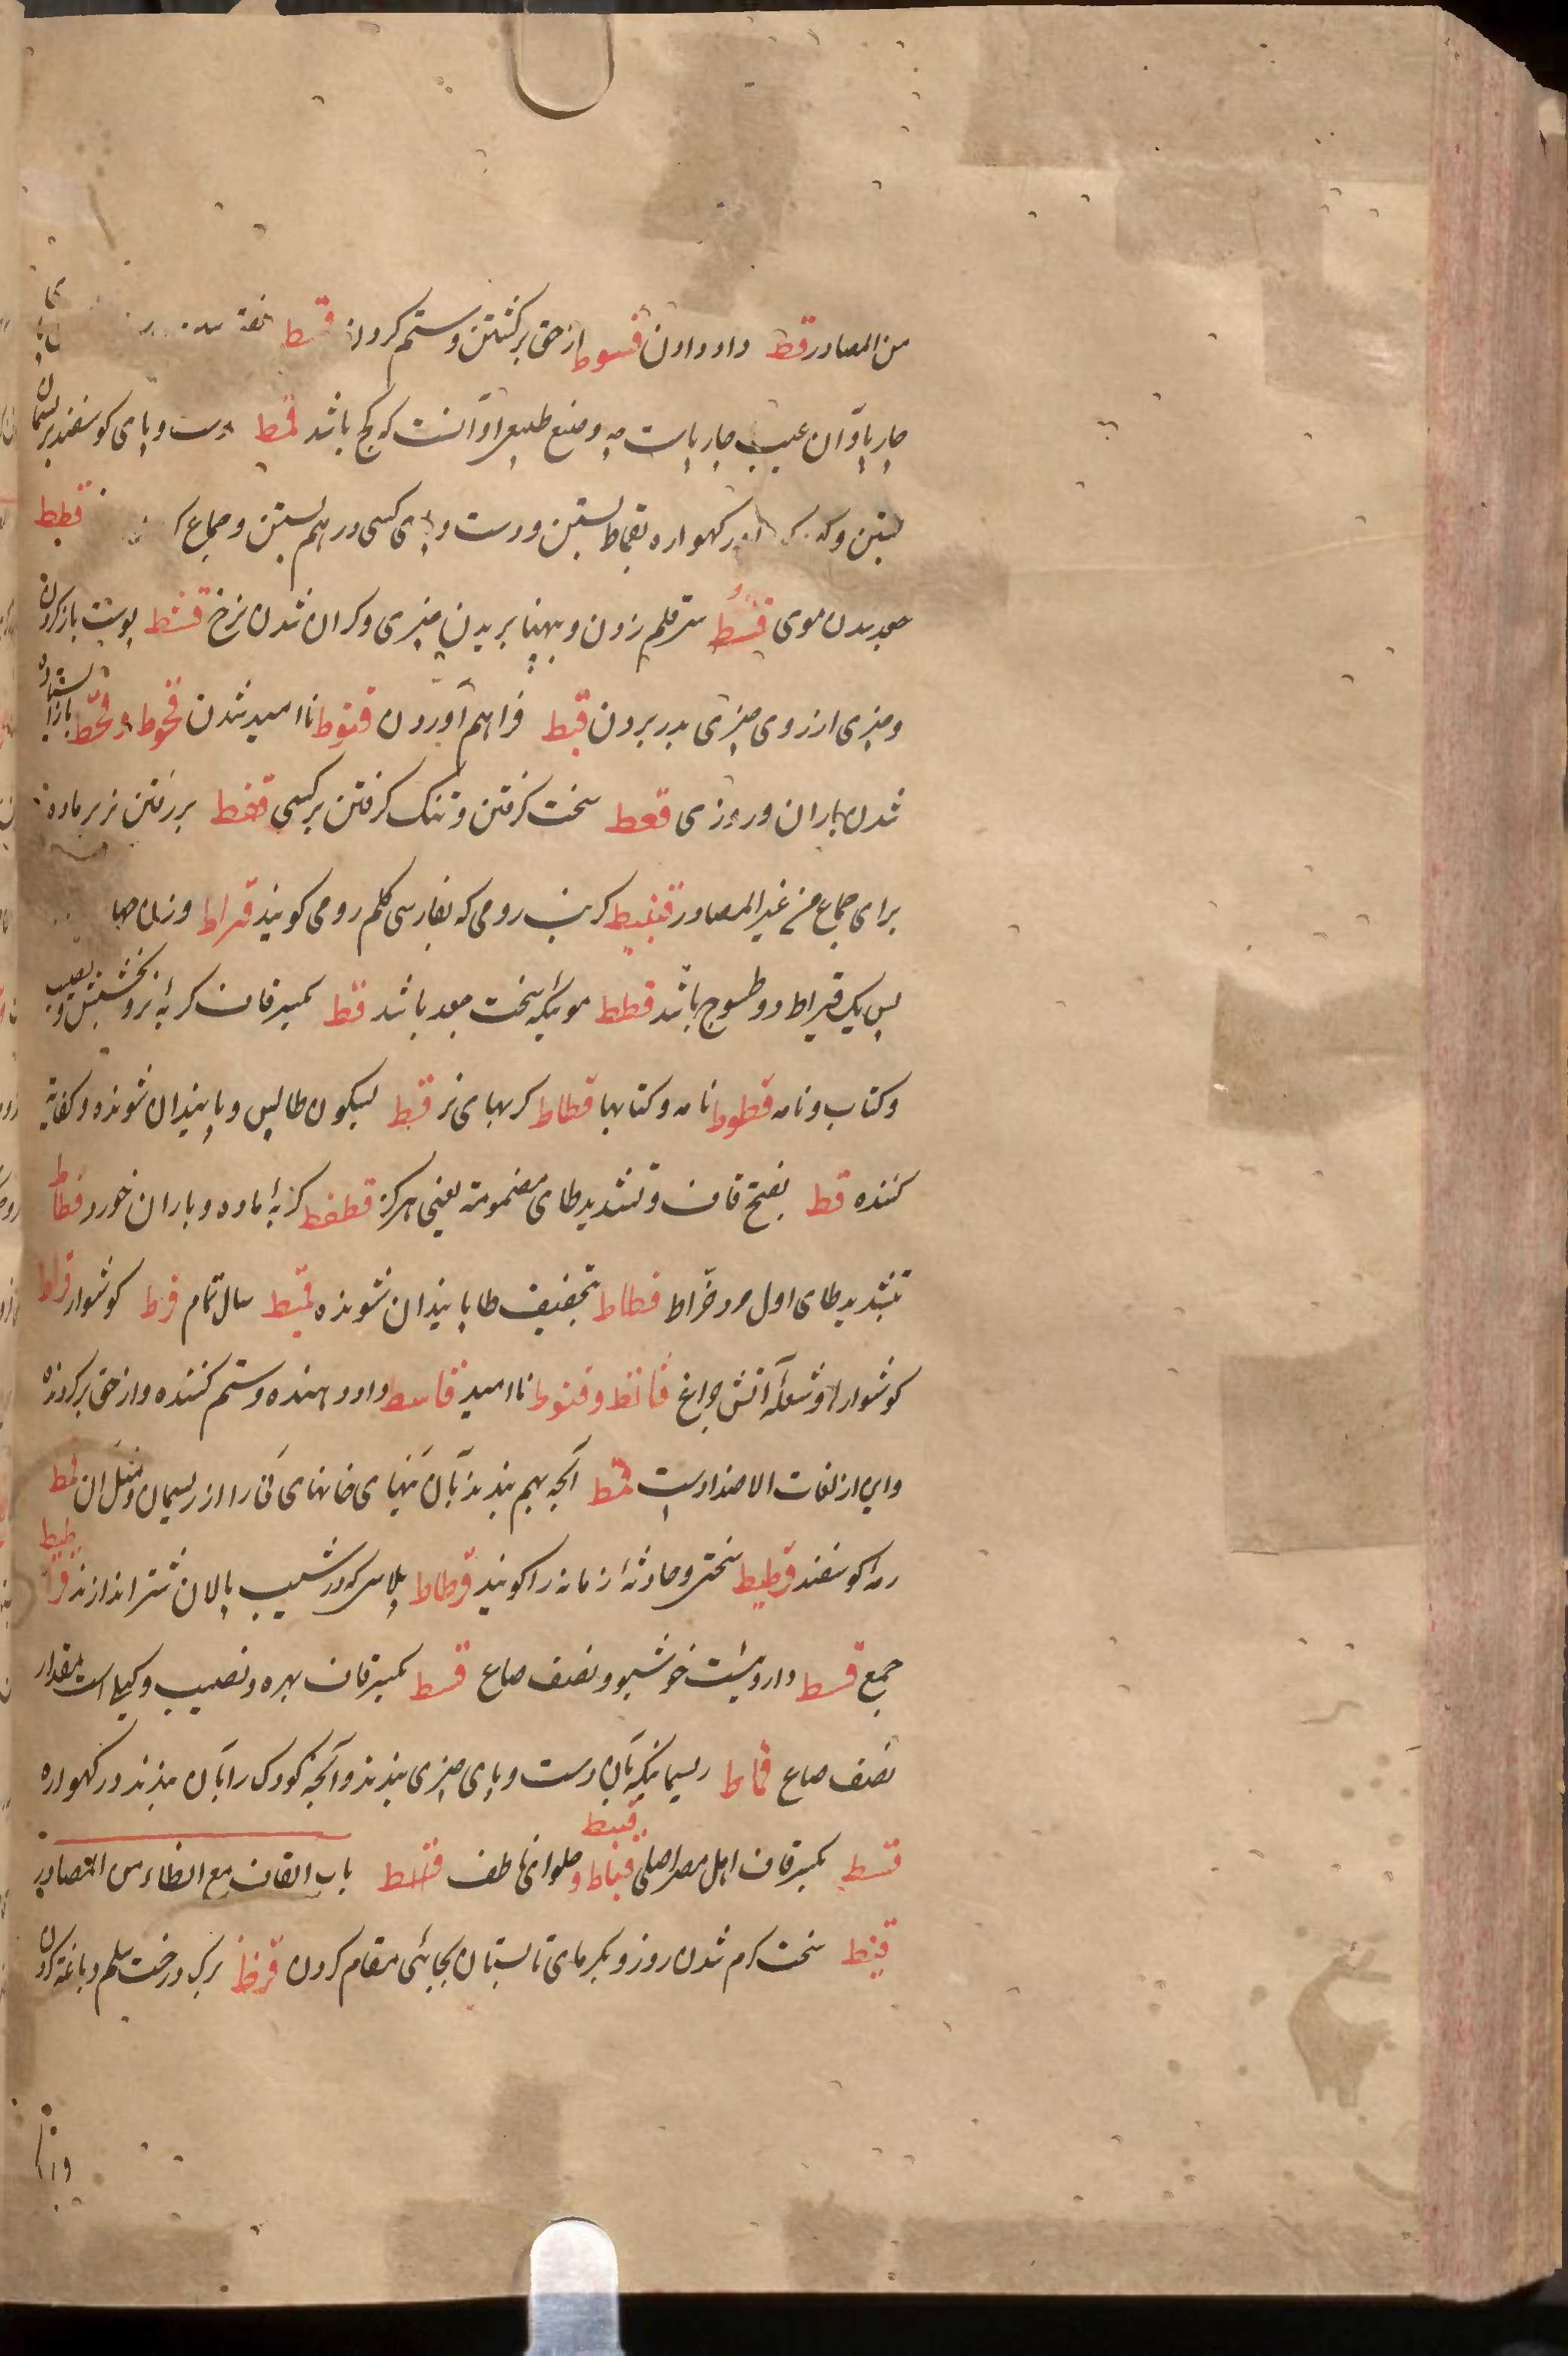 من المصادر قسط داد دادن قسوط از حق برکشتن و ستم کردن قسط
چارپا و آن عیب چارپاست چه وضع طبیعی او آنست که کج باشد قمط دست و پای کوسفند بریسمان
بستن و کودک را در کهواره بقماط بستن و دست و پای کسی در هم بستن و جماع قطط
جعد شدن موی قط سر قلم زدن و بپهنا بریدن چیزی و کران شدن نرخ قشط پوست باز کردن
و چیزی از روی چیزی بدر بردن قبط فراهم آوردن قنوط ناامید شدن قحوط و قحط باز ایستاده
شدن باران و روزی قعط سخت کرفتن و تنک کرفتن بر کسی قفط بر رفتن نر بر ماده
برای جماع من غیر المصادر قنبیط کرنب رومی که بفارسی کلم رومی کویند قیراط وزن
پس یک قیراط دو طسوج باشد قطط مویکه سخت جعد باشد قط بکسر قاف کربۀ نر و بخشش و نصیب
و کتاب و نامه قطوط نامه و کتابها قطاط کربهای نر قبط
کننده قط بفتح قاف و تشدید طای مضمومة یعنی هرکز قطقط کربۀ ماده و باران خورد قطاط
بتشدید طای اول مرد خراط قطاط بتخفیف طا پایندان شونده قمیط سال تمام قرط کوشوار قراط
کوشوارها و شعلۀ آتش چراغ قانط و قنوط ناامید قاسط داد دهنده و ستم کننده و از حق برکردنده
و این از لغات الاضداد است قمط آنچه بهم بندند بآن نیهای خانهای نی را از ریسمان و مثل آن قمط
رمۀ کوسفند قرطیط سختی و حادثۀ زمانه را کویند قرطاط پلاسی که در شیب پالان شتر اندازند قراطیط
جمع قسط داروئیست خوشبو و نصف صاع قسط بکسر قاف بهره و نصیب و کیلی است بمقدار
نصف صاع قماط ریسمانیکه بآن دست و پای چیزی بندند و آنچه کودک را بآن بندند در کهواره
قبط بکسر قاف اهل مصر اصلی قباط و قبیط حلوای ناطف باب القاف مع الظاء من المصادر
قیظ سخت کرم شدن روز و بکرمای تابستان بجائی مقام کردن قرظ ببرک درخت سلم دباغة کردن